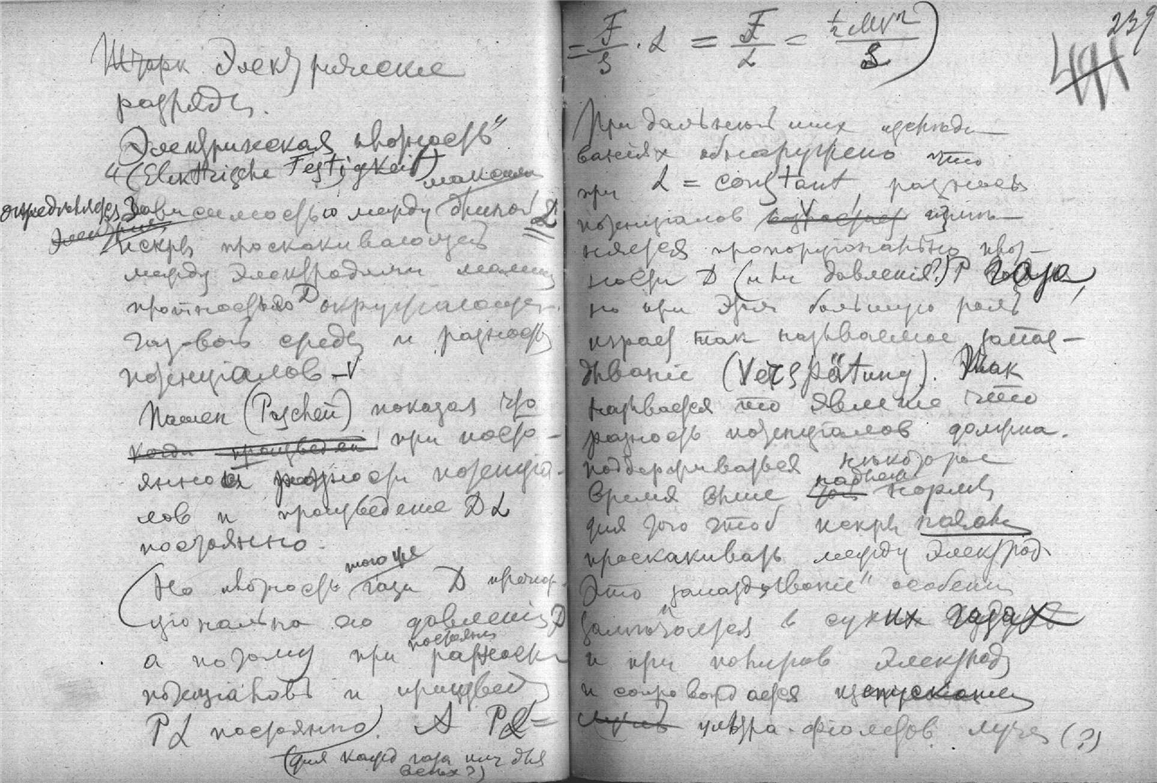 Электрическіе
разряды.
„Электрическая плотность"
(Elektrische Festigkeit)
определяется Зависимостью между длиной L
искры проскакивающей
между электродами
плотностью D окружающей
газ-вой среды и разность
потенціалов V
Пашен (Paschen) показал что
при посто-
янной разности потенціа-
лов и произведеніе DL
постоянно.
(Но плотность того же газа D пропор-
ціональна его давленію
а потому при постоянн разности
потенціаловъ и произвед
PL постоянно). А PL=
(для кажд газа или для
всех?)
= F/S · L = F/L = ½MV²/S )
239
При дальнейших изследо-
ваніях обнаружено что
при L = constant, разность
потенціалов V изме-
няется пропорціонально плот-
ности D (или давленія?) P газа,
но при этом большую роль
играет так называемое запаз-
дываніе (Verspätung). Так
называется то явленіе что
разность потенціалов должна
поддерживаться некоторое
время выше нормы
для того чтоб искры начали
проскакивать между электрод
Это „запаздываніе" особенно
замечается в сухих газах
и при полиров электрод
и сопровождается
ультра-фіолетов лучей (?)